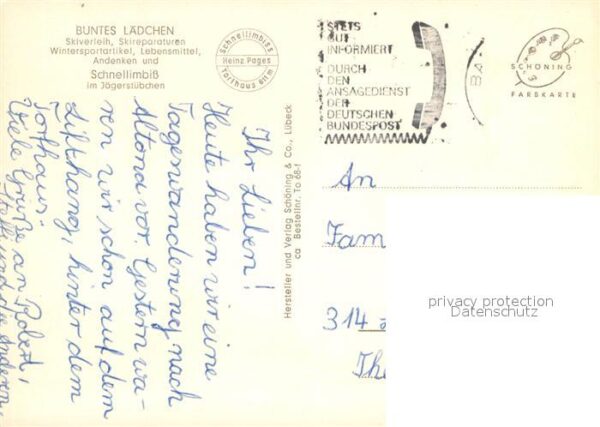 BUNTES LÄDCHEN
Skiverleih, Skireparaturen
Wintersportartikel, Lebensmittel,
Andenken und
Schnellimbiß
im Jägerstübchen
Schnellimbiss
Heinz Pages
Torfhaus
STETS
GUT
INFORMIERT
DURCH
DEN
ANSAGEDIENST
DER
DEUTSCHEN
BUNDESPOST
BA
SCHÖNING
FARBKARTE
Hersteller und Verlag Schöning & Co., Lübeck
ca Bestellnr. To 68-f
Ihr Lieben!
Heute haben wir eine
Tageswanderung nach
Altona vor. Gestern wa-
ren wir schon auf dem
Lifthang, hinter dem
Torfhaus.
Viele Grüße an Robert,
und die anderen
An
Fam
314
privacy protection
Datenschutz